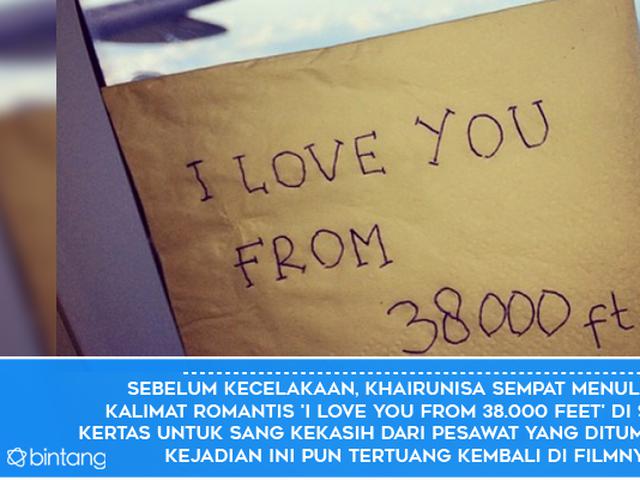 I LOVE YOU
FROM
38000 ft
SEBELUM KECELAKAAN, KHAIRUNISA SEMPAT MENUL
KALIMAT ROMANTIS 'I LOVE YOU FROM 38.000 FEET' DI S
KERTAS UNTUK SANG KEKASIH DARI PESAWAT YANG DITUM
KEJADIAN INI PUN TERTUANG KEMBALI DI FILMNY
bintang